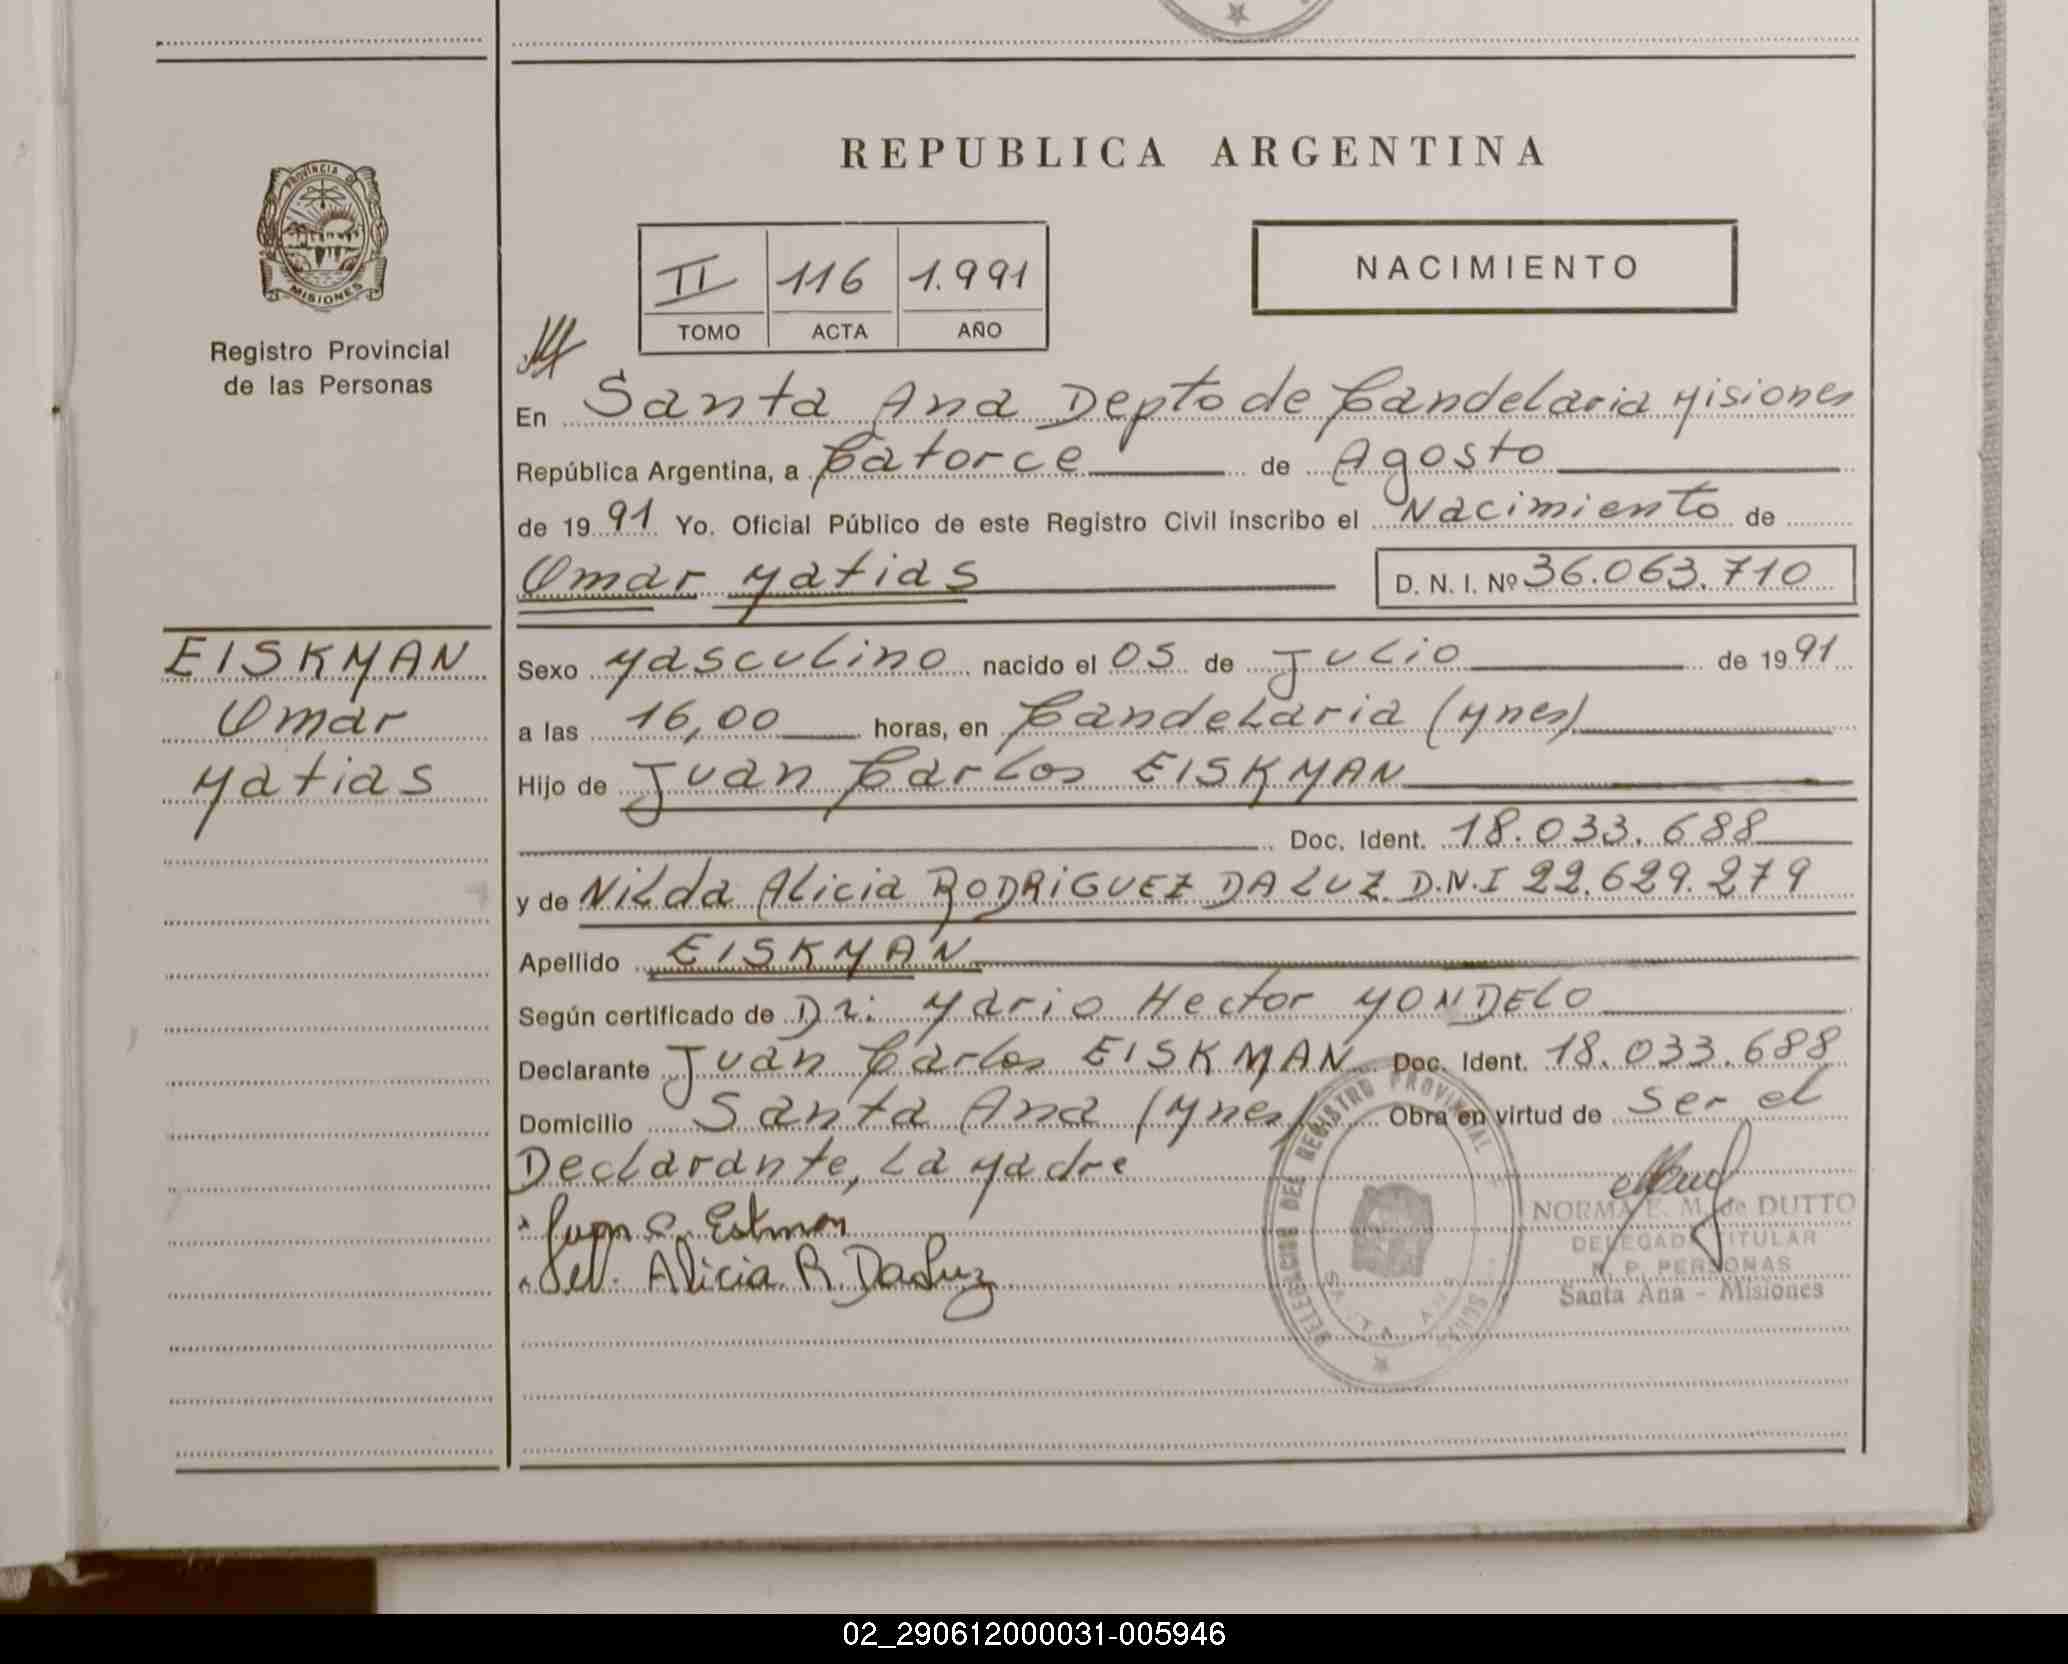 REPUBLICA ARGENTINA
PROVINCIA DE
MISIONES
Registro Provincial
de las Personas
II 116 1.991
TOMO ACTA AÑO
NACIMIENTO
En Santa Ana Depto de Candelaria Misiones
República Argentina, a Catorce de Agosto
de 1991 Yo. Oficial Público de este Registro Civil inscribo el Nacimiento de
Omar Matias D. N. I. Nº 36.063.710
EISKMAN
Omar
Matias
Sexo Masculino nacido el 05 de Julio de 1991
a las 16,00 horas, en Candelaria (Mnes)
Hijo de Juan Carlos EISKMAN
Doc. Ident. 18.033.688
y de Nilda Alicia RODRIGUEZ DA LUZ D.N.I 22.629.279
Apellido EISKMAN
Según certificado de Dr: Mario Hector MONDELO
Declarante Juan Carlos EISKMAN Doc. Ident. 18.033.688
Domicilio Santa Ana (Mnes) Obra en virtud de ser el
Declarante, La Madre
Juan C. Eskman
Alicia R. DaLuz
DELEGACION DEL REGISTRO PROVINCIAL
SANTA ANA
NORMA E. M. de DUTTO
DELEGADA TITULAR
R. P. PERSONAS
Santa Ana - Misiones
02_290612000031-005946